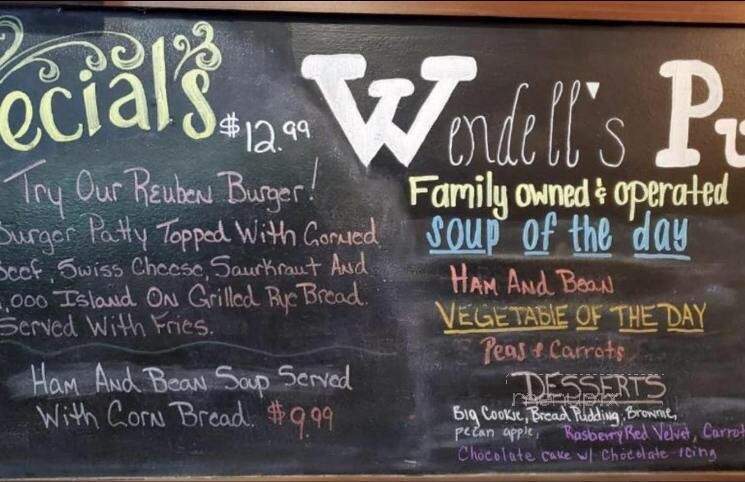 ecial's
$12.99
Try Our Reuben Burger!
Burger Patty Topped With Corned
Beef, Swiss Cheese, Saurkraut And
1,000 Island On Grilled Rye Bread.
Served With Fries.
Ham And Bean Soup Served
With Corn Bread. $9.99
Wendell's Pu
Family owned & operated
Soup of the day
Ham And Bean
VEGETABLE OF THE DAY
Peas & Carrots
DESSERTS
Big Cookie, Bread Pudding, Brownie,
pecan apple, Rasberry Red Velvet, Carrot
Chocolate cake w/ Chocolate icing